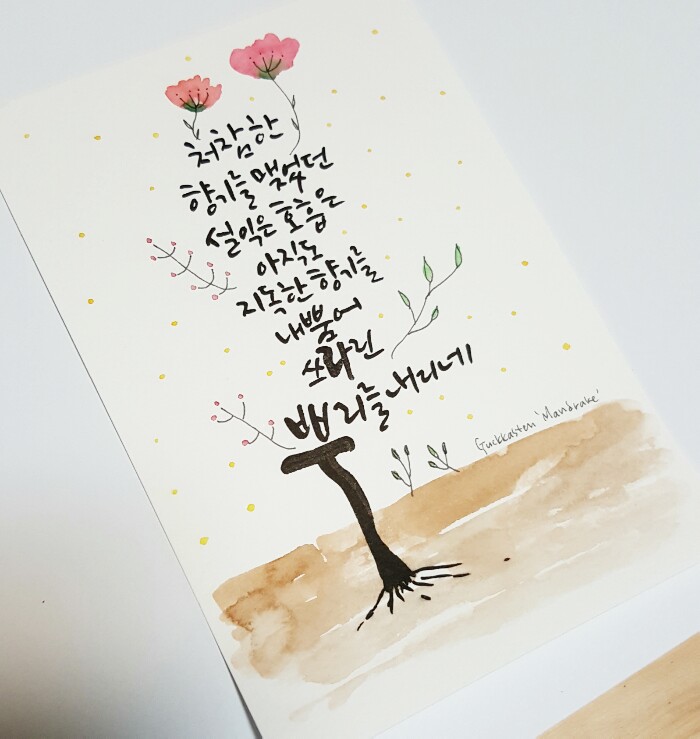 처참한
향기를 맺었던
설익은 호흡은
아직도
지독한 향기를
내뿜어
쓰라린
뿌리를 내리네
Guckkasten 'Mandrake'